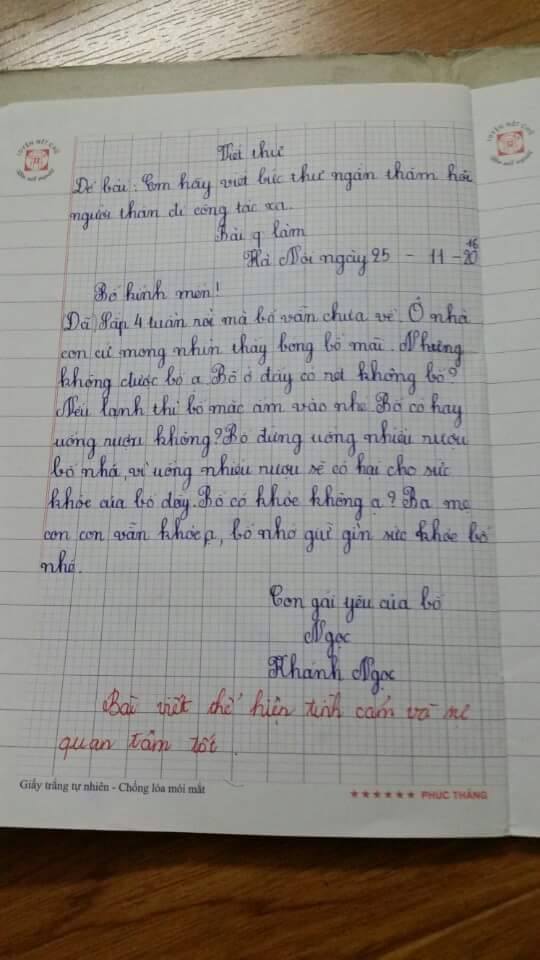 Viết thư
Đề bài: Em hãy viết bức thư ngắn thăm hỏi
người thân đi công tác xa.
Bài làm
Hà Nội ngày 25 - 11 - 2016
Bố kính mến!
Đã sắp 4 tuần rồi mà bố vẫn chưa về. Ở nhà
con cứ mong nhìn thấy bóng bố mãi. Nhưng
không được bố ạ. Bố ở đấy có rét không bố?
Nếu lạnh thì bố mặc ấm vào nhé. Bố có hay
uống rượu không? Bố đừng uống nhiều rượu
bố nhá, vì uống nhiều rượu sẽ có hại cho sức
khỏe của bố đấy. Bố có khỏe không ạ? Ba mẹ
con con vẫn khỏe ạ, bố nhớ giữ gìn sức khỏe bố
nhé.
Con gái yêu của bố
Ngọc
Khánh Ngọc
Bài viết thể hiện tình cảm và sự
quan tâm tốt.
Giấy trắng tự nhiên - Chống lóa mỏi mắt
PHÚC THẮNG